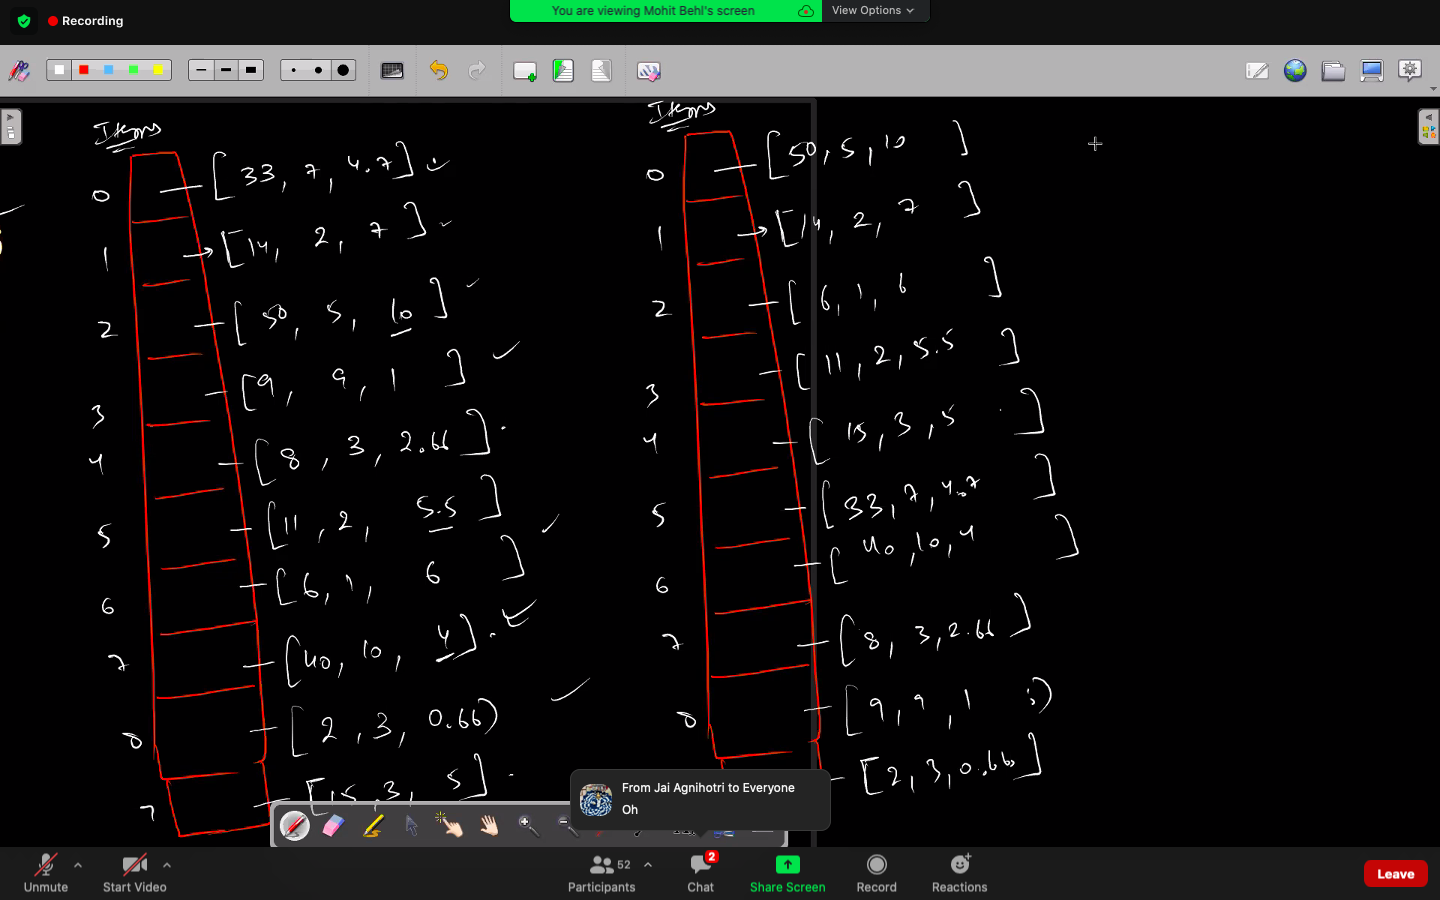 Recording
You are viewing Mohit Behl's screen
View Options
Items
0 [33, 7, 4.7]
1 [14, 2, 7]
2 [50, 5, 10]
3 [9, 9, 1]
4 [8, 3, 2.66]
5 [11, 2, 5.5]
6 [6, 1, 6]
7 [40, 10, 4]
8 [2, 3, 0.66)
9 [15, 3, 5]
Items
0 [50, 5, 10]
1 [14, 2, 7]
2 [6, 1, 6]
3 [11, 2, 5.5]
4 [15, 3, 5]
5 [33, 7, 4.7]
6 [40, 10, 4]
7 [8, 3, 2.66]
8 [9, 9, 1
[2, 3, 0.66]
From Jai Agnihotri to Everyone
Oh
Unmute
Start Video
Participants
52
Chat
2
Share Screen
Record
Reactions
Leave